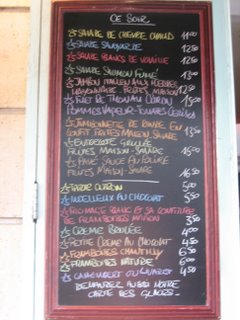 CE SOIR
SALADE DE CHEVRE CHAUD 11.00
SALADE SAVOYARDE 12.50
SALADE BLANCS DE VOLAILLE 12.50
SALADE SAUMON FUMÉ
JAMBON ITALIEN AUX HERBES
MAYONNAISE FRITES MAISON
FILET DE THON AU CITRON
POMMES VAPEUR-TOMATES CERISES
JAMBONNETTE DE DINDE EN
CONFIT FRITES MAISON-SALADE
ENTRECOTE GRILLÉE
FRITES MAISON-SALADE 15.50
PAVÉ SAUCE AU POIVRE
FRITES MAISON-SALADE 16.50
TARTE CITRON 5.50
MOELLEUX AU CHOCOLAT 5.50
FROMAGE BLANC ET SA CONFITURE
DE FRAMBOISES MAISON 3.50
CREME BRULÉE 4.50
PETITE CREME AU CHOCOLAT 4.50
FRAMBOISES CHANTILLY 6.50
FRAMBOISES NATURE 6.00
CAMEMBERT OU LIVAROT 4.50
DEMANDEZ AUSSI NOTRE
CARTE DES GLACES